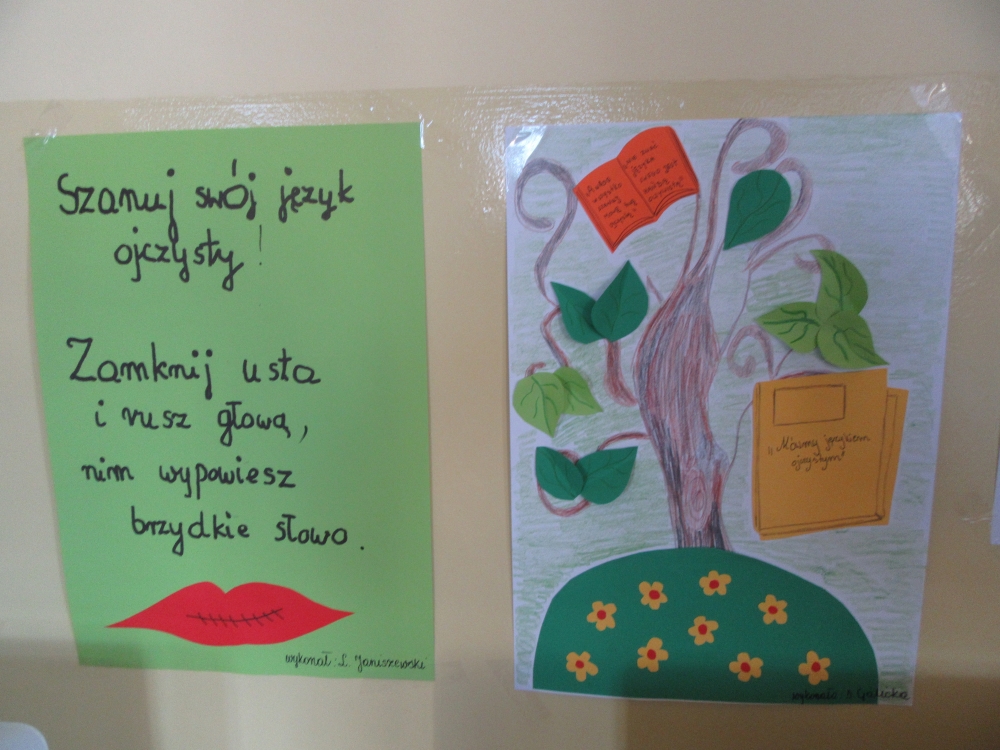 Szanuj swój język
ojczysty!
Zamknij usta
i rusz głową,
nim wypowiesz
brzydkie słowo.
wykonał: L. Janiszewski
język
"Mówmy językiem
ojczystym"
wykonała